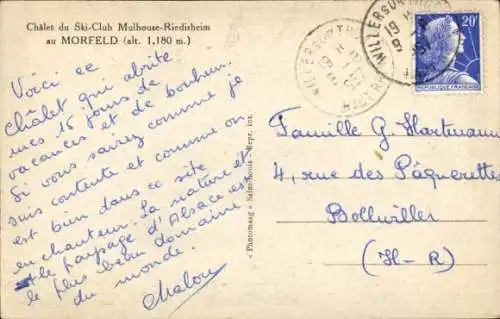 Châlet du Ski-Club Mulhouse-Riedisheim
au MORFELD (alt. 1,180 m.)
Voici ce
châlet qui abrite
mes 15 jours de
vacances et de bonheur.
Si vous saviez comme je
suis contente et comme on
est bien dans ce site
enchanteur. La nature et
le paysage d'Alsace est
le plus beau domaine
du monde.
Malou
« Photomaag » Saint-Louis - Repr. Int.
WILLER SUR THUR
HAUT-RHIN
WILLER SUR THUR
20F
REPUBLIQUE FRANÇAISE
Famille G. Hartmann
4, rue des Pâquerettes
Bollwiller
(H-R)